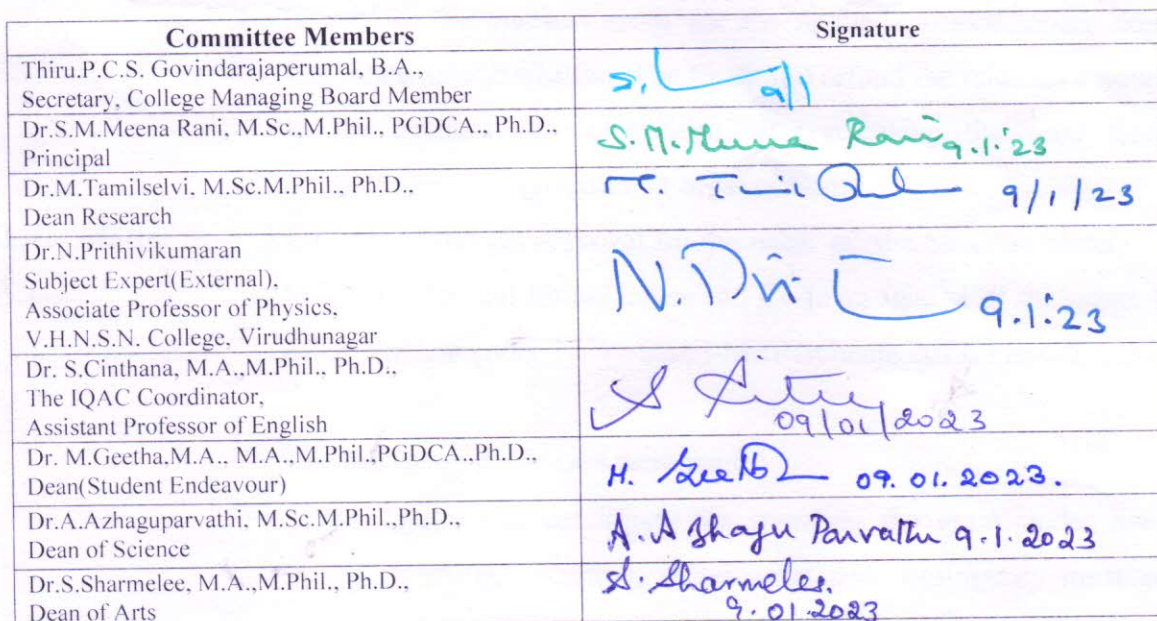 Committee Members
Signature
Thiru.P.C.S. Govindarajaperumal, B.A.,
Secretary, College Managing Board Member
S. 9/1
Dr.S.M.Meena Rani, M.Sc.,M.Phil., PGDCA., Ph.D.,
Principal
S.M.Meena Rani 9.1.'23
Dr.M.Tamilselvi, M.Sc.M.Phil., Ph.D.,
Dean Research
9/1/23
Dr.N.Prithivikumaran
Subject Expert(External),
Associate Professor of Physics,
V.H.N.S.N. College, Virudhunagar
N. 9.1.'23
Dr. S.Cinthana, M.A.,M.Phil., Ph.D.,
The IQAC Coordinator,
Assistant Professor of English
S 09/01/2023
Dr. M.Geetha,M.A., M.A.,M.Phil.,PGDCA.,Ph.D.,
Dean(Student Endeavour)
M. Geetha 09.01.2023.
Dr.A.Azhaguparvathi, M.Sc.M.Phil.,Ph.D.,
Dean of Science
A.Azhagu Parvathi 9.1.2023
Dr.S.Sharmelee, M.A.,M.Phil., Ph.D.,
Dean of Arts
S. Sharmelee.
9.01.2023